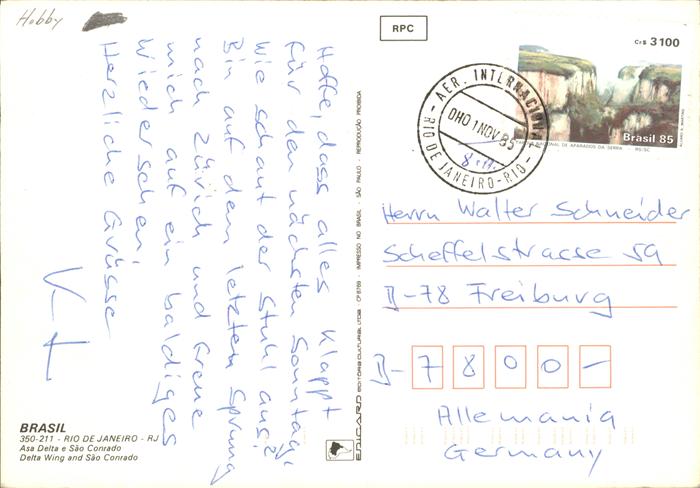 Hobby
Hoffe, dass alles klappt
für den nächsten Sonntag,
wie schaut der Stuhl aus?
Bin auf dem letzten Sprung
nach Zürich und freue
mich auf ein baldiges
Wiedersehen
Herzliche Grüsse
BRASIL
350-211 - RIO DE JANEIRO - RJ
Asa Delta e São Conrado
Delta Wing and São Conrado
EDICARD EDITORA CULTURAL LTDA - CP 8769 - IMPRESSO NO BRASIL - SÃO PAULO - REPRODUÇÃO PROIBIDA
RPC
AER. INTERNACIONAL
1 NOV 85
RIO DE JANEIRO - RIO
Cr$ 3100
Brasil 85
PARQUE NACIONAL DE APARADOS DA SERRA RS/SC
Herrn Walter Schneider
Scheffelstrasse 59
D-78 Freiburg
D-7800-
Allemania
Germany